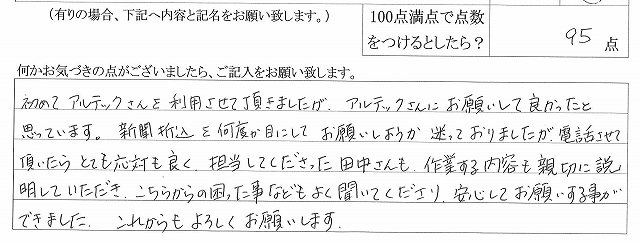 （有りの場合、下記へ内容と記名をお願い致します。）
100点満点で点数
をつけるとしたら？
95 点
何かお気づきの点がございましたら、ご記入をお願い致します。
初めてアルテックさんを利用させて頂きましたが、アルテックさんにお願いして良かったと
思っています。新聞折込を何度か目にしてお願いしようか迷っておりましたが、電話させて
頂いたらとても応対も良く、担当してくださった田中さんも、作業する内容も親切に説
明していただき、こちらからの困った事などもよく聞いてくださり、安心してお願いする事が
できました。これからもよろしくお願いします。